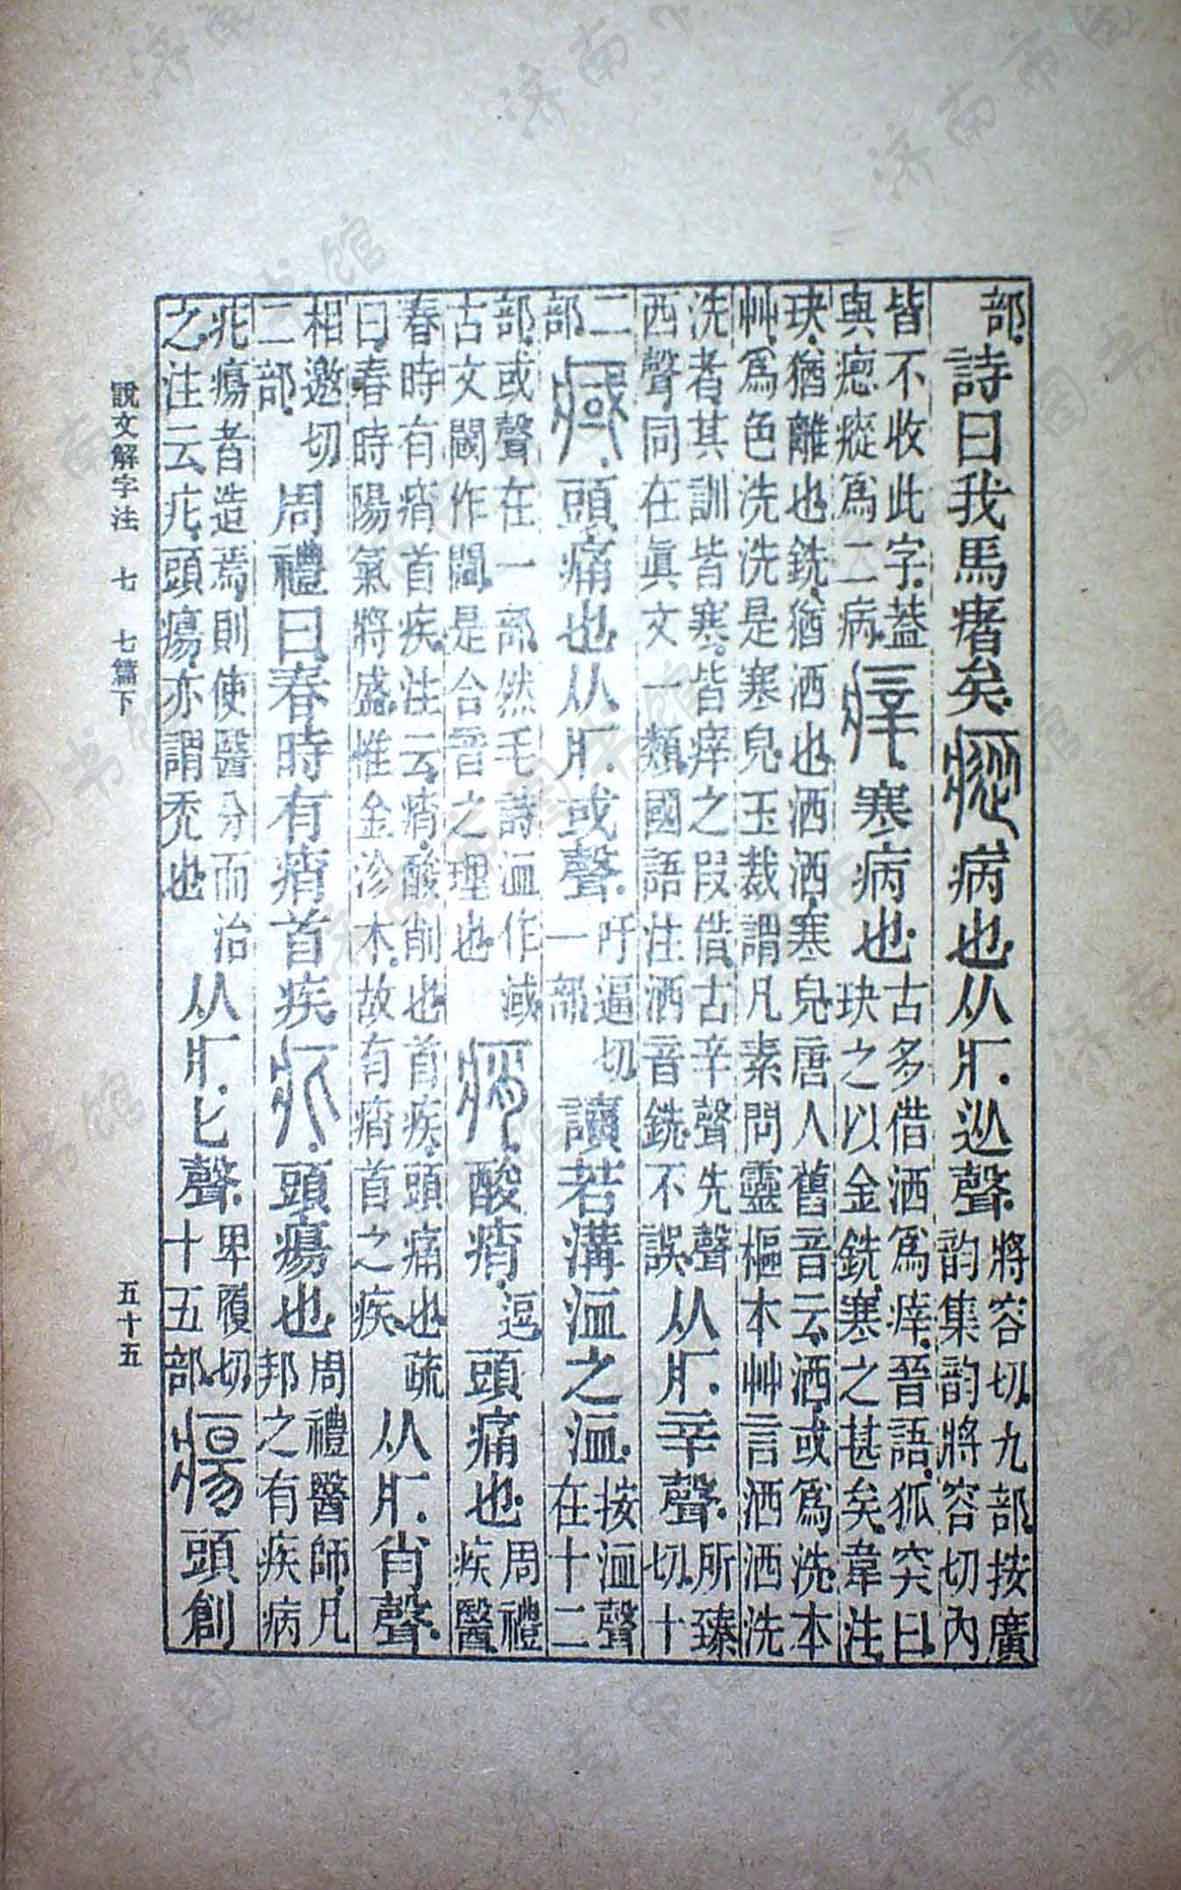 部詩曰我馬瘏矣瘲病也从疒從聲將容切九部按廣
韵集韵將容切內
皆不收此字蓋
與瘛瘲爲二病㾕寒病也古多借洒爲㾕晉語狐突曰
玦之以金銑寒之甚矣韋注
玦猶離也銑猶洒也洒洒寒皃唐人舊音云洒或爲洗本
艸爲色洗洗是寒皃玉裁謂凡素問靈樞本艸言洒洒洗
洗者其訓皆寒皆㾕之叚借古辛聲先聲
西聲同在眞文一類國語注洒音銑不誤从疒辛聲所臻
切十
二部㽽頭痛也从疒或聲吁逼切
一部讀若溝洫之洫按洫聲
在十二
部或聲在一部然毛詩洫作淢
古文閾作䦗是合音之理也痟酸痟逗頭痛也周禮
疾醫
春時有痟首疾注云痟酸削也首疾頭痛也疏
曰春時陽氣將盛惟金沴木故有痟首之疾从疒肖聲
相邀切
二部周禮曰春時有痟首疾疕頭瘍也周禮醫師凡
邦之有疾病
疕瘍者造焉則使醫分而治
之注云疕頭瘍亦謂禿也从疒匕聲卑履切
十五部瘍頭創
說文解字注 七 七篇下 五十五